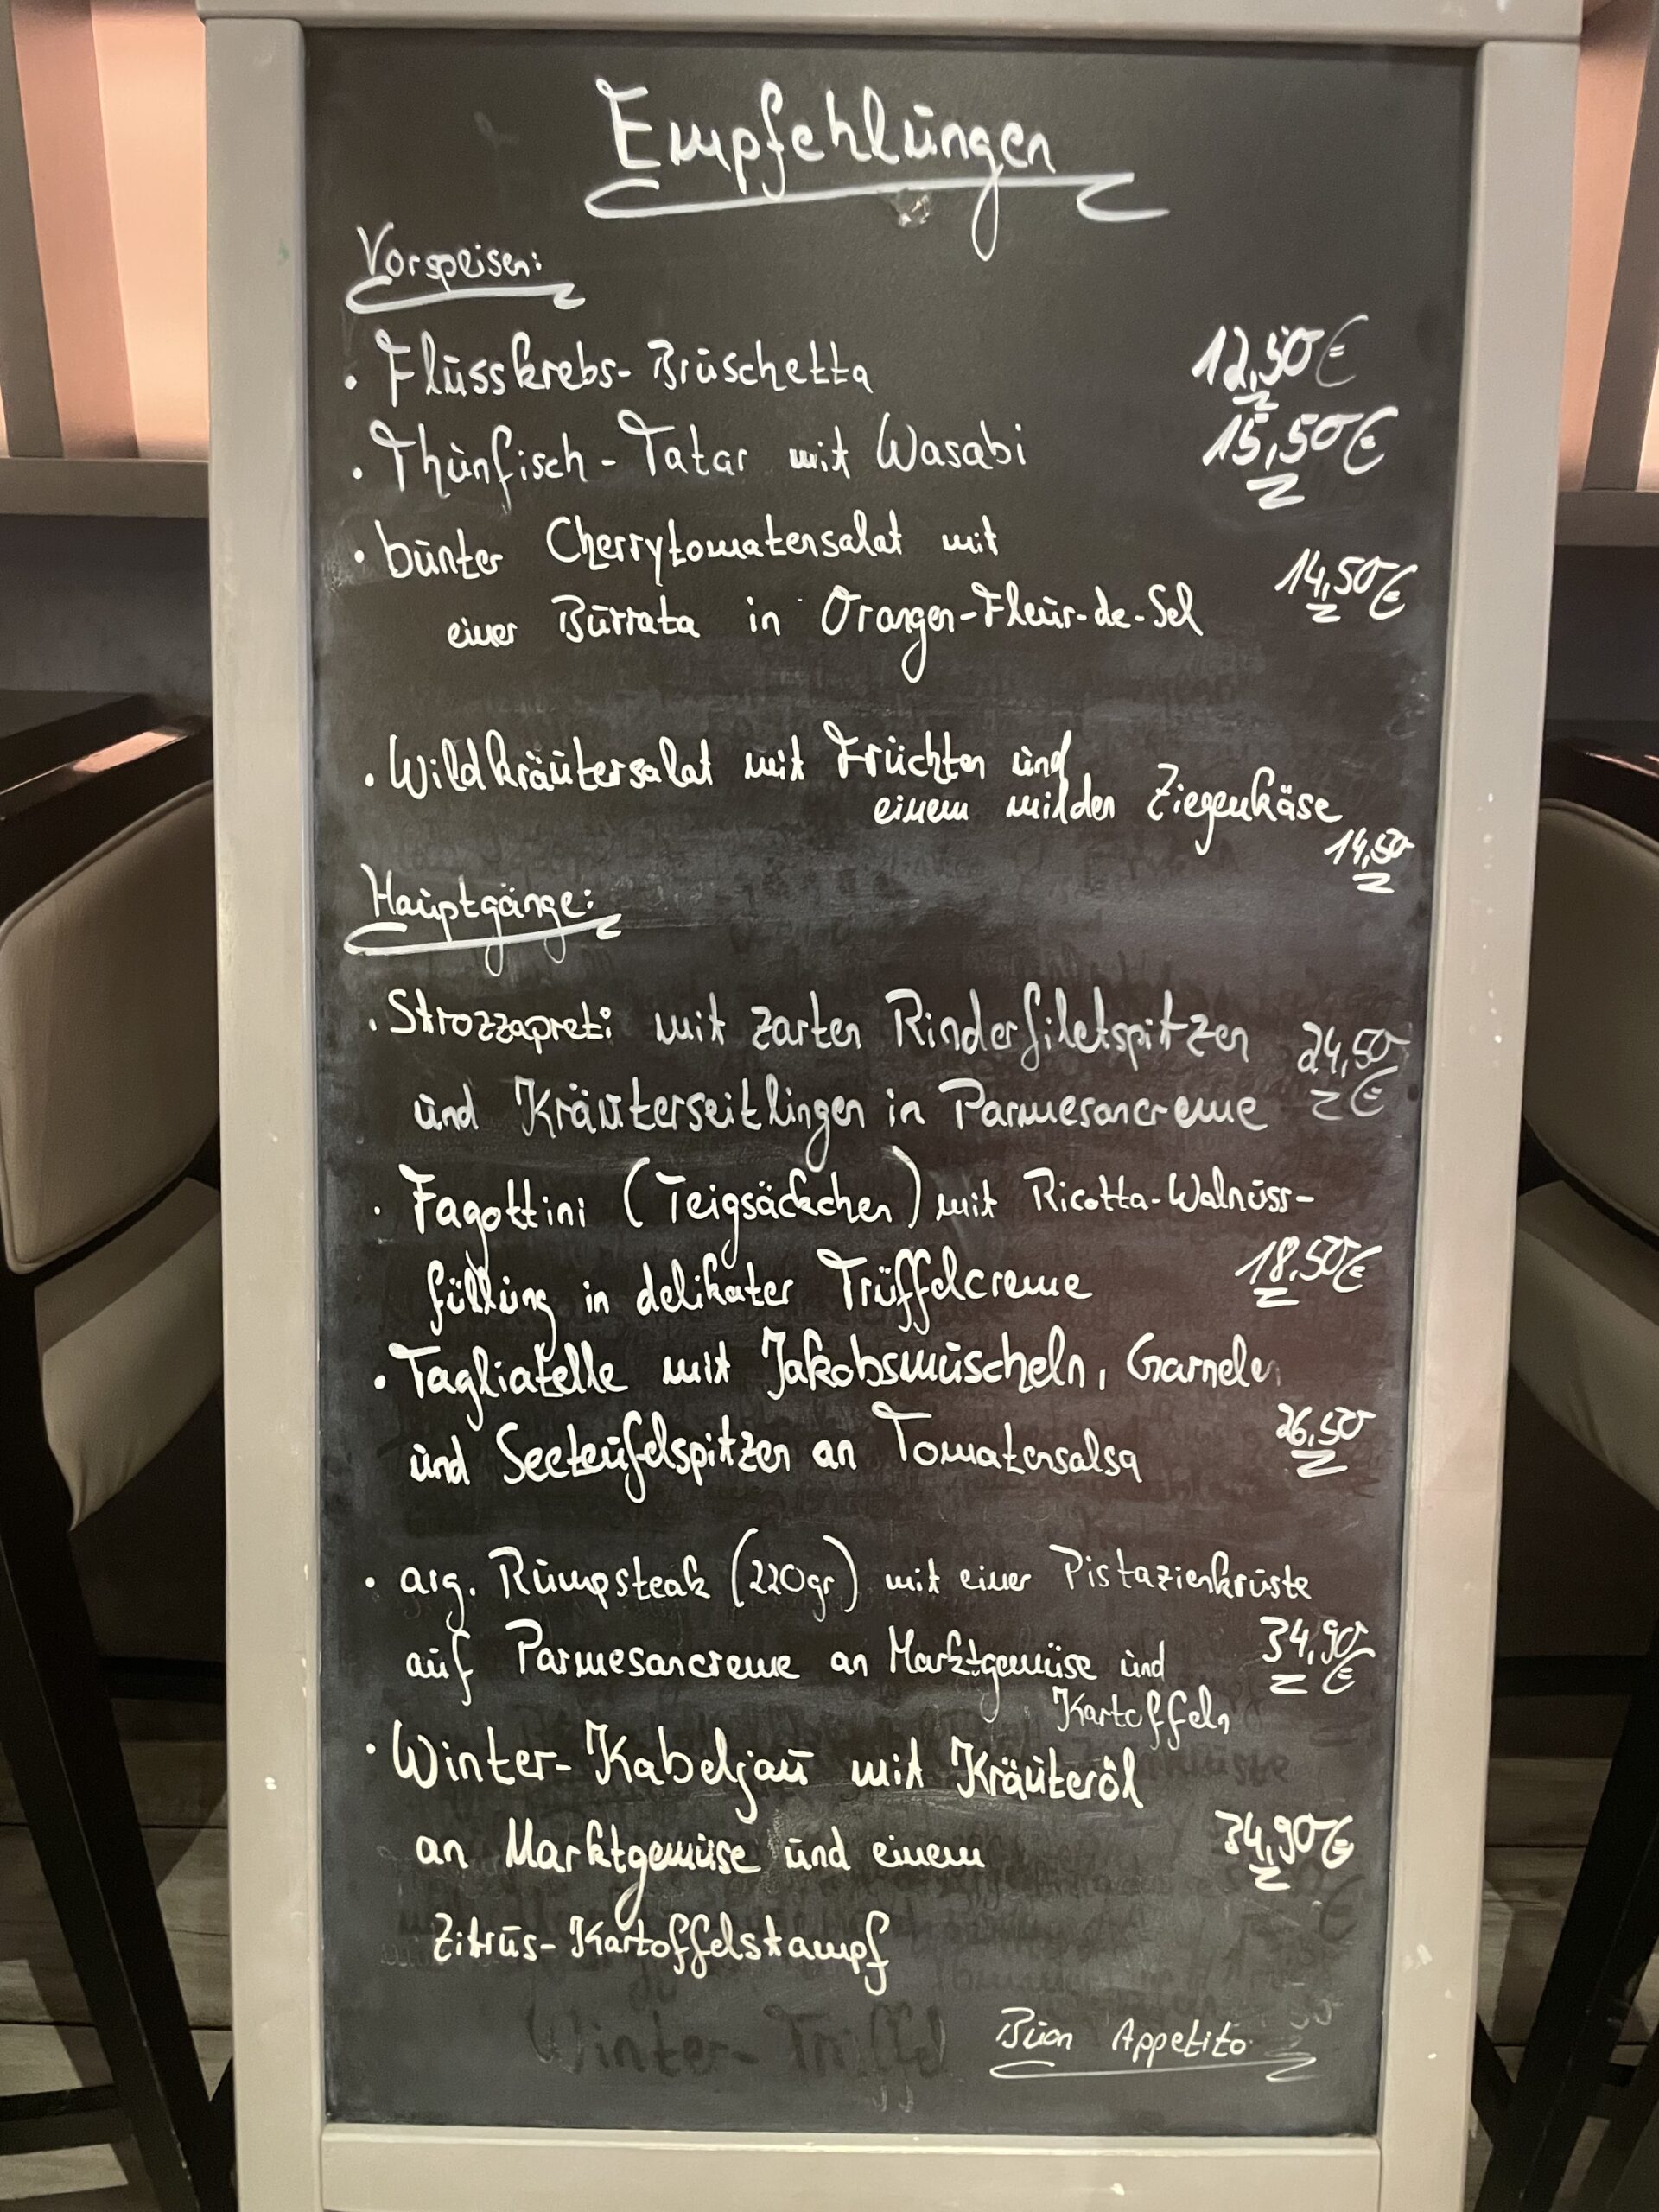 Empfehlungen
Vorspeisen:
• Flusskrebs-Bruschetta 12,50€
• Thunfisch-Tatar mit Wasabi 15,50€
• bunter Cherrytomatensalat mit
einer Burrata in Orangen-Fleur-de-Sel 14,50€
• Wildkräutersalat mit Früchten und
einem milden Ziegenkäse
14,50
Hauptgänge:
• Strozzapreti mit zarten Rinderfiletspitzen 24,50
und Kräuterseitlingen in Parmesancreme €
• Fagottini (Teigsäckchen) mit Ricotta-Walnuss-
füllung in delikater Trüffelcreme 18,50€
• Tagliatelle mit Jakobsmuscheln, Garnelen
und Seeteufelspitzen an Tomatensalsa 26,50
• arg. Rumpsteak (220gr) mit einer Pistazienkruste
auf Parmesancreme an Marktgemüse und 34,90€
Kartoffeln
• Winter-Kabeljau mit Kräuteröl
an Marktgemüse und einem 34,90€
Zitrus-Kartoffelstampf
Winter-Trüffel
Buon Appetito